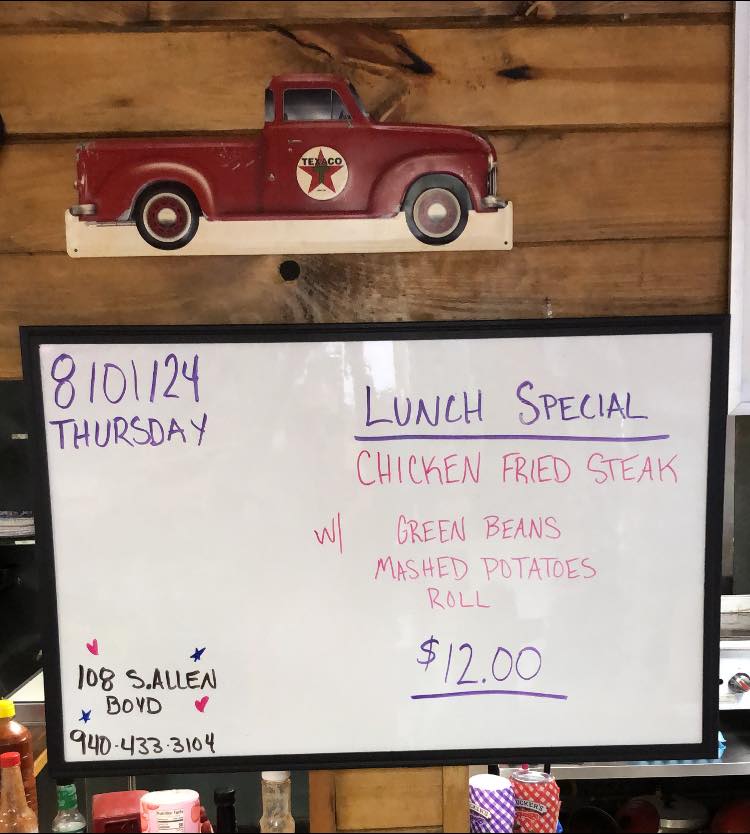 TEXACO
T
8/01/24
THURSDAY
LUNCH SPECIAL
CHICKEN FRIED STEAK
W/ GREEN BEANS
MASHED POTATOES
ROLL
$12.00
108 S.ALLEN
BOYD
940-433-3104